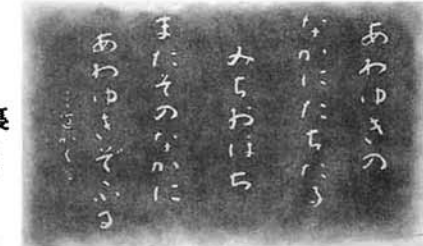 あわゆきの
なかにたちたる
みちおほち
またそのなかに
あわゆきぞふる